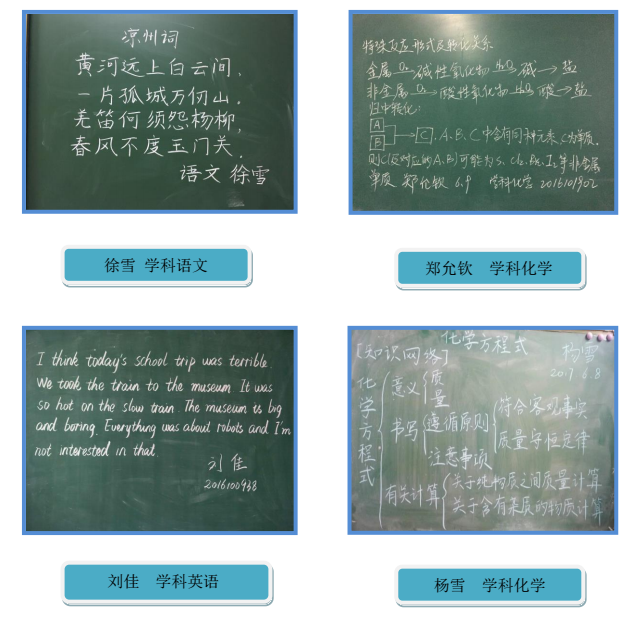 凉州词
黄河远上白云间，
一片孤城万仞山．
羌笛何须怨杨柳，
春风不度玉门关．
语文 徐雪
徐雪 学科语文
特殊反应形式及转化关系
金属 O₂→ 碱性氧化物 H₂O→ 碱→盐
非金属 O₂→ 酸性氧化物 H₂O→ 酸→盐
归中转化：
A
B
C, A、B、C中含有同种元素, C为单质.
则C(反应的A、B)可能为S、Cl₂、I₂等非金属
单质 郑允钦 6.9 学科化学 2016101902
郑允钦 学科化学
I think today's school trip was terrible.
We took the train to the museum. It was
so hot on the slow train. The museum is big
and boring. Everything was about robots and I'm
not interested in that.
刘佳
2016100938
刘佳 学科英语
化学方程式
[知识网络]
杨雪
2017.6.8
化学方程式
意义
质
量
书写
遵循原则
符合客观事实
质量守恒定律
注意事项
有关计算
关于纯物质之间质量计算
关于含有杂质的物质计算
杨雪 学科化学